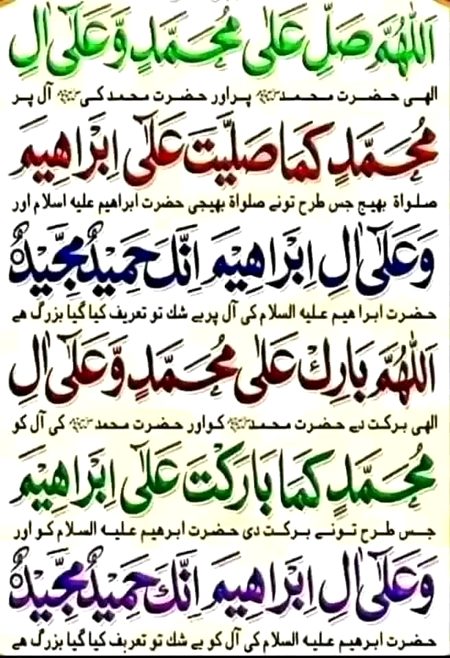 اَللّٰهُمَّ صَلِّ عَلٰى مُحَمَّدٍ وَّعَلٰٓى اٰلِ
الٰهی حضرت محمد ﷺ پر اور حضرت محمد کی ﷺ آل پر
مُحَمَّدٍ كَمَا صَلَّيْتَ عَلٰٓى اِبْرَاهِيْمَ
صلواۃ بهیج جس طرح تونے صلواۃ بهیجی حضرت ابراهیم علیه اسلام اور
وَعَلٰٓى اٰلِ اِبْرَاهِيْمَ اِنَّكَ حَمِيْدٌ مَّجِيْدٌ
حضرت ابراهیم علیه السلام کی آل پر بے شك تو تعریف کیا گیا بزرگ هے
اَللّٰهُمَّ بَارِكْ عَلٰى مُحَمَّدٍ وَّعَلٰٓى اٰلِ
الٰهی برکت دے حضرت محمد ﷺ کو اور حضرت محمد ﷺ کی آل کو
مُحَمَّدٍ كَمَا بَارَكْتَ عَلٰٓى اِبْرَاهِيْمَ
جس طرح تونے برکت دی حضرت ابرهیم علیه السلام کو اور
وَعَلٰٓى اٰلِ اِبْرَاهِيْمَ اِنَّكَ حَمِيْدٌ مَّجِيْدٌ
حضرت ابراهیم علیه السلام کی آل کو بے شك تو تعریف کیا گیا بزرگ هے